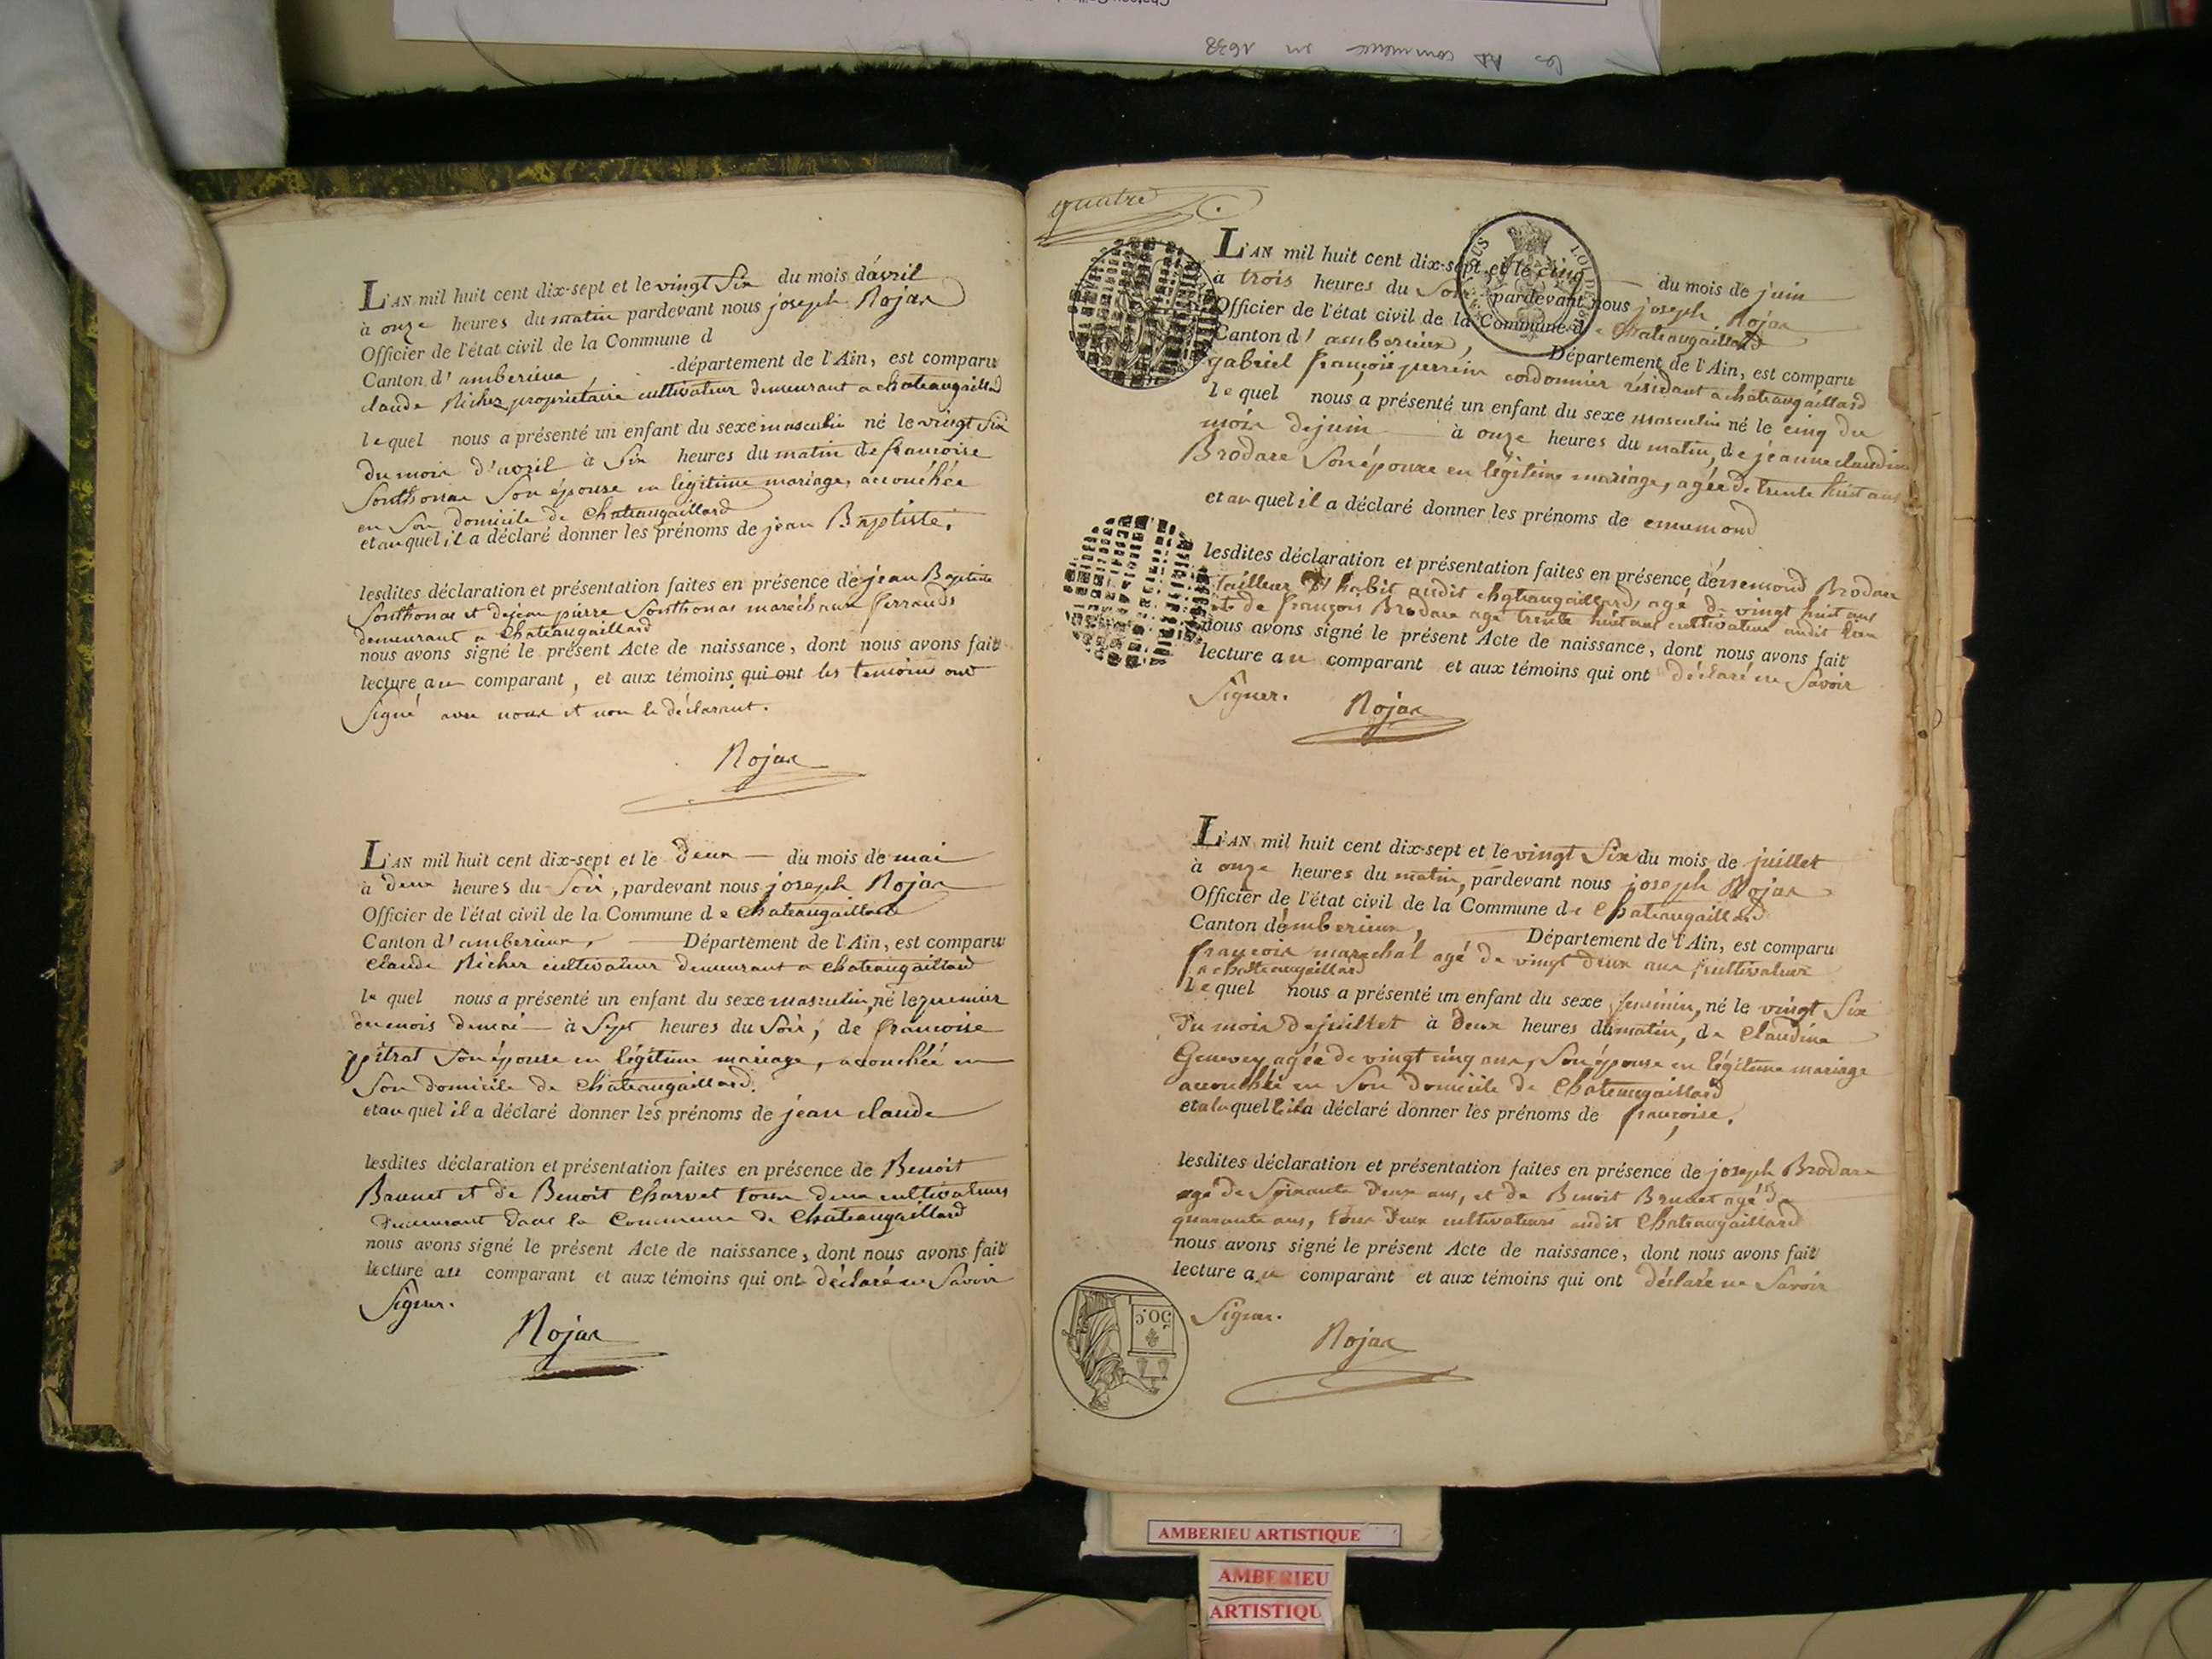 les commence en 1638
L'AN mil huit cent dix-sept et le vingt Six du mois d'avril
à onze heures du matin pardevant nous joseph Rojax
Officier de l'état civil de la Commune d
Canton d'amberieux, département de l'Ain, est comparu
claude Richer propriétaire cultivateur demeurant a chateaugaillard
lequel nous a présenté un enfant du sexe masculin né le vingt Six
du mois d'avril à Six heures du matin de francoise
Sonthonax Son épouse en légitime mariage, accouchée
en Son domicile de Chateaugaillard
et au quel il a déclaré donner les prénoms de jean Baptiste.
lesdites déclaration et présentation faites en présence de jean Baptiste
Sonthonax et de jean pierre Sonthonas maréchaux ferrands
demeurant a Chateaugaillard
nous avons signé le présent Acte de naissance, dont nous avons fait
lecture au comparant, et aux témoins qui ont les temoins ont
Signé avec nous et non le déclarant.
Rojax
L'AN mil huit cent dix-sept et le deux du mois de mai
à deux heures du Soir, pardevant nous joseph Rojax
Officier de l'état civil de la Commune de Chateaugaillard
Canton d'amberieux, Département de l'Ain, est comparu
Claude Richer cultivateur demeurant a Chateaugaillard
lequel nous a présenté un enfant du sexe masculin, né le premier
du mois de mai à Sept heures du Soir, de francoise
pitrat Son épouse en légitime mariage, accouchéé en
Son domicile de Chateaugaillard.
et au quel il a déclaré donner les prénoms de jean claude
lesdites déclaration et présentation faites en présence de Benoit
Brunet et de Benoit Charvet tous deux cultivateurs
demeurant dans la Commune de Chateaugaillard
nous avons signé le présent Acte de naissance, dont nous avons fait
lecture au comparant et aux témoins qui ont déclaré ne Savoir
Signer.
Rojax
quatre
L'AN mil huit cent dix-sept et le cinq du mois de juin
à trois heures du Soir pardevant nous joseph Rojax
Officier de l'état civil de la Commune de Chateaugaillard
Canton d'amberieux, Département de l'Ain, est comparu
gabriel françois perrin cordonnier résidant a chateaugaillard
lequel nous a présenté un enfant du sexe masculin né le cinq du
mois de juin à onze heures du matin, de jeanne claudine
Brodare Son épouse en légitime mariage, agée de trente huit ans
et au quel il a déclaré donner les prénoms de ennemond
lesdites déclaration et présentation faites en présence d'ennemond Brodare
tailleur d'habit audit chateaugaillard, agé de vingt huit ans
et de françois Brodare agé trente huit ans cultivateur audit lieu
nous avons signé le présent Acte de naissance, dont nous avons fait
lecture au comparant et aux témoins qui ont déclaré ne Savoir
Signer.
Rojax
L'AN mil huit cent dix-sept et le vingt Six du mois de juillet
à onze heures du matin, pardevant nous joseph Rojax
Officier de l'état civil de la Commune de Chateaugaillard
Canton d'amberieux, Département de l'Ain, est comparu
françois marechal agé de vingt deux ans cultivateur
a chatteaugaillard
lequel nous a présenté un enfant du sexe feminin, né le vingt Six
du mois de juillet à deux heures du matin, de Claudine
Genevey agée de vingt cinq ans, Son épouse en légitime mariage
accouchée en Son domicile de Chateaugaillard
et a la quelle il a déclaré donner les prénoms de françoise.
lesdites déclaration et présentation faites en présence de joseph Brodare
agé de Soixante deux ans, et de Benoit Brunet agé de
quarante ans, tous deux cultivateurs audit Chateaugaillard
nous avons signé le présent Acte de naissance, dont nous avons fait
lecture au comparant et aux témoins qui ont déclaré ne Savoir
Signer.
Rojax
50 C
AMBERIEU ARTISTIQUE
AMBERIEU
ARTISTIQU